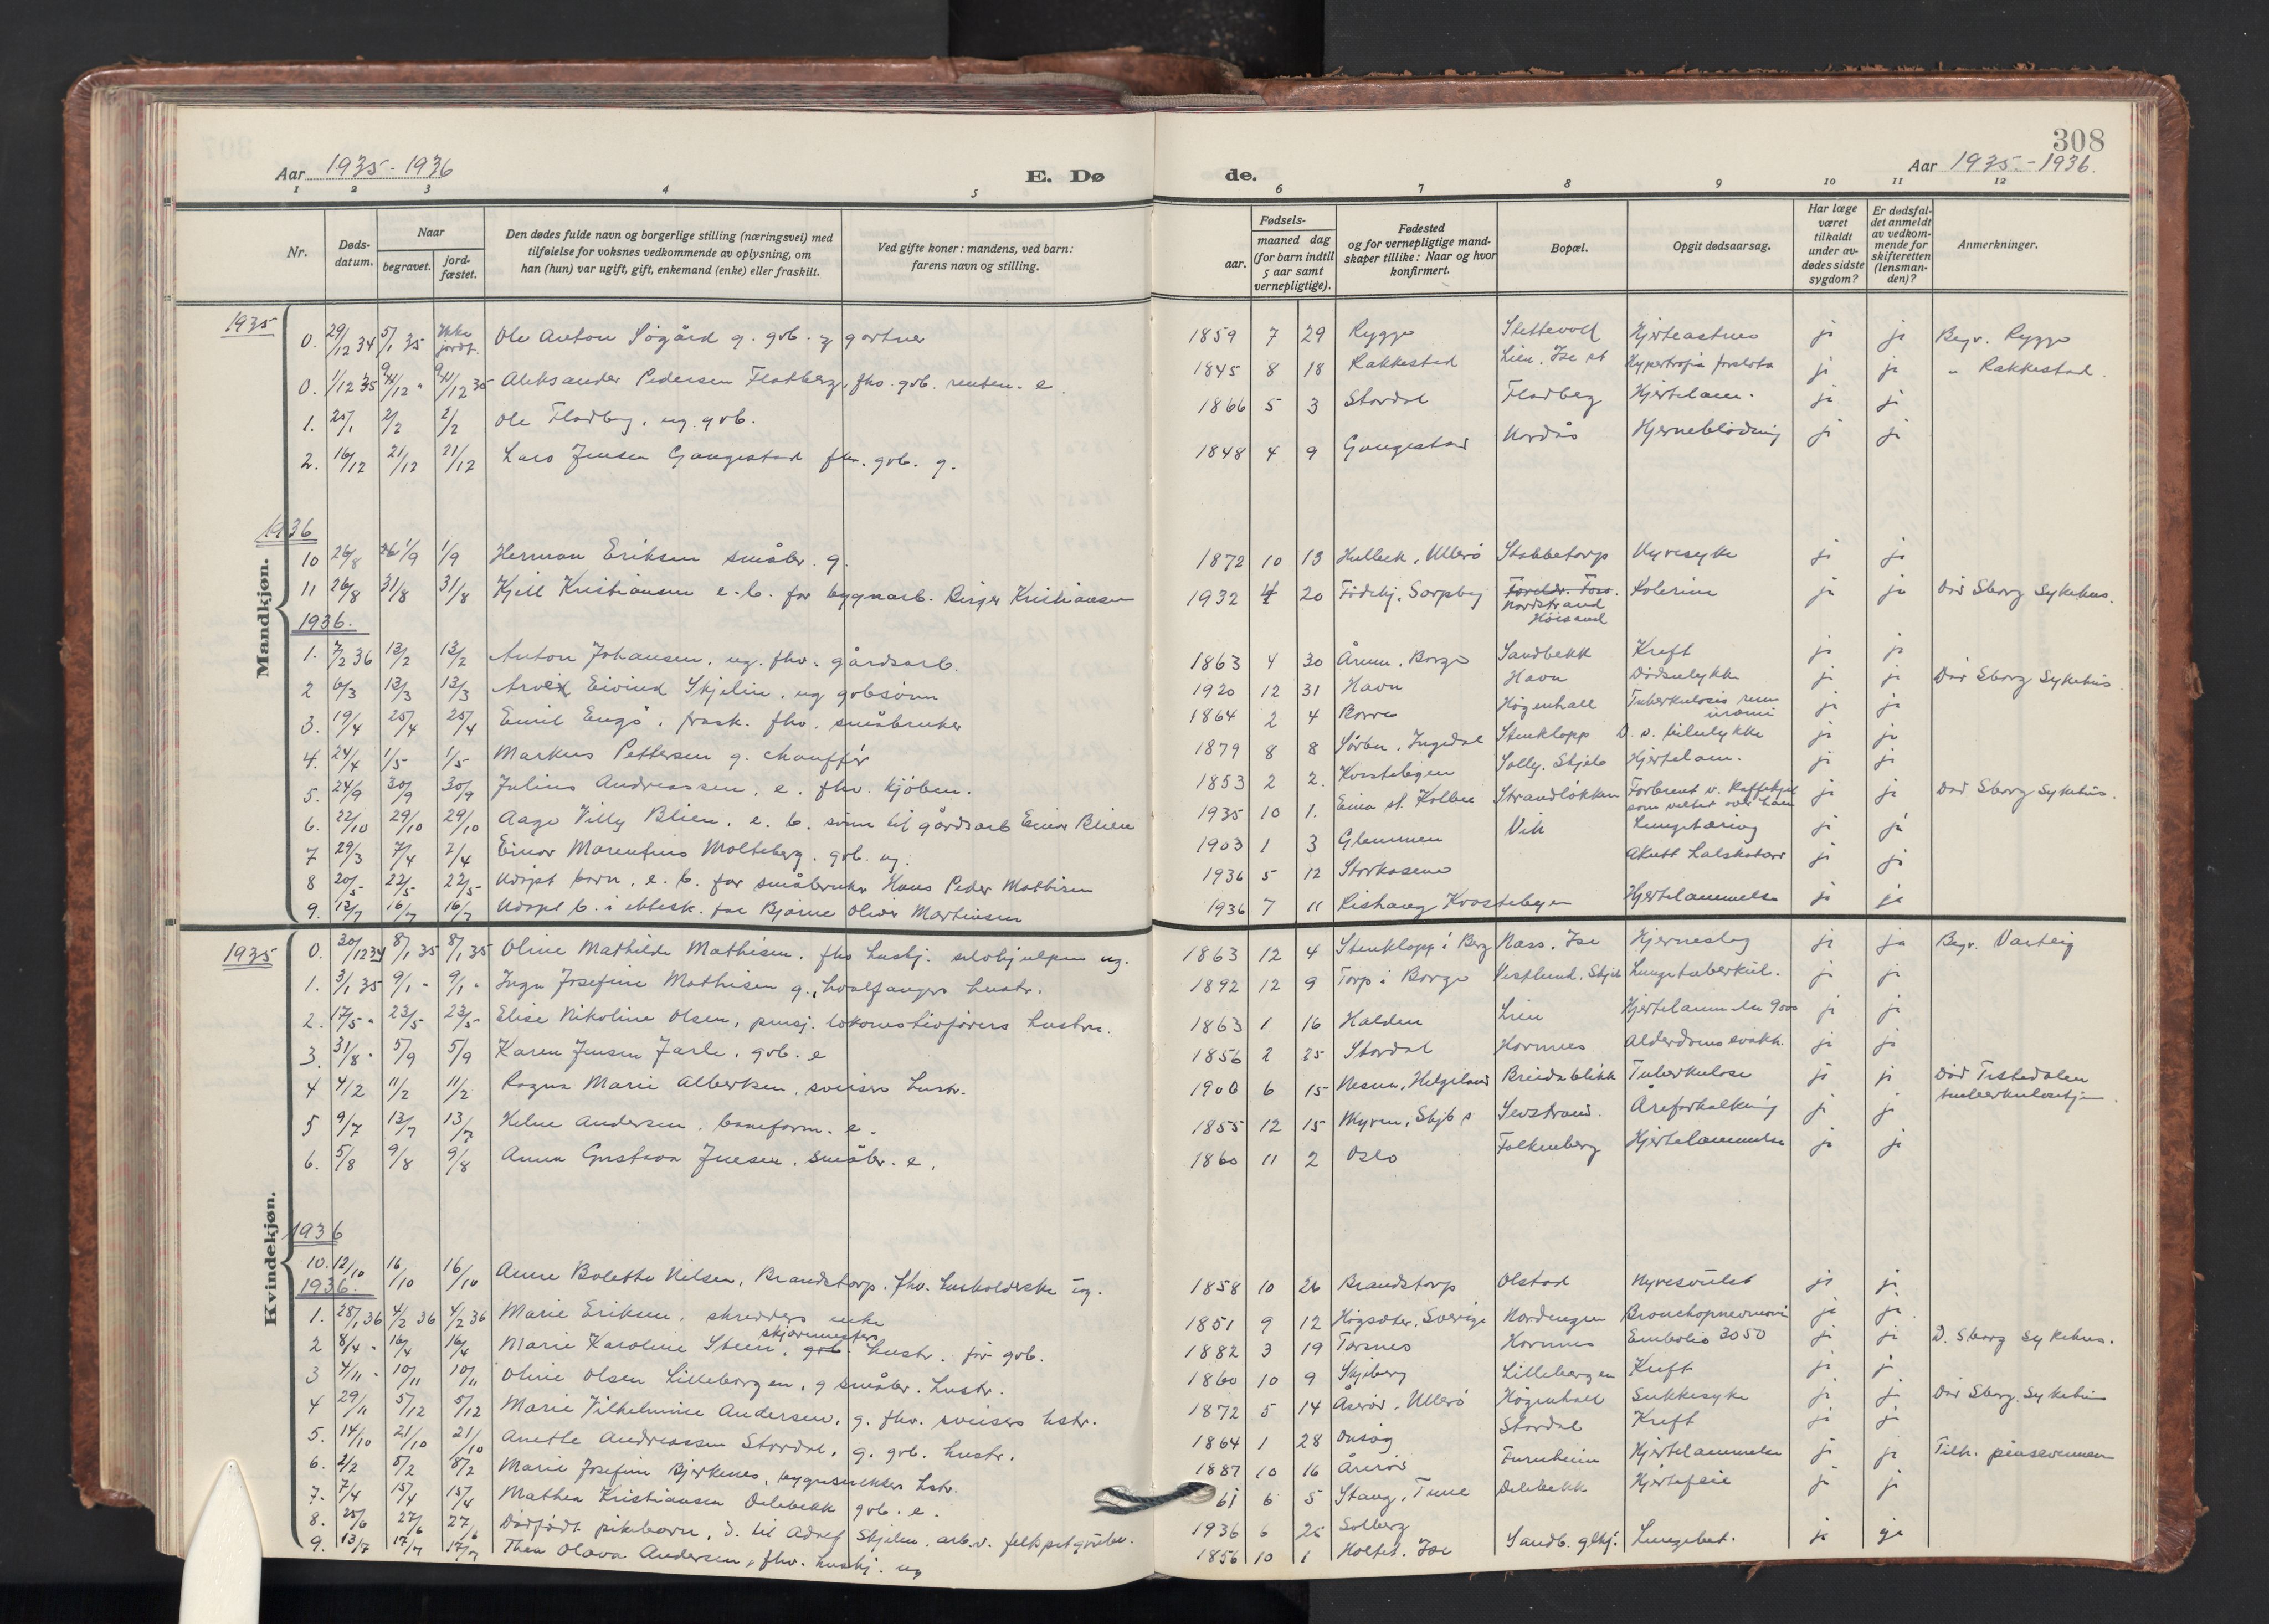 308
Aar 1935-1936
E. Dø
de.
Aar 1935-1936.
1 2 3 4 5 6 7 8 9 10 11 12
Nr.
Døds-
datum.
Naar
begravet.
jord-
fæstet.
Den dødes fulde navn og borgerlige stilling (næringsvei) med
tilføielse for voksnes vedkommende av oplysning, om
han (hun) var ugift, gift, enkemand (enke) eller fraskilt.
Ved gifte koner: mandens, ved barn:
farens navn og stilling.
Fødsels-
aar.
maaned dag
(for barn indtil
5 aar samt
vernepligtige).
Fødested
og for vernepligtige mand-
skaper tillike: Naar og hvor
konfirmert.
Bopæl.
Opgit dødsaarsag.
Har læge
været
tilkaldt
under av-
dødes sidste
sygdom?
Er dødsfal-
det anmeldt
av vedkom-
mende for
skifteretten
(lensman-
den)?
Anmerkninger.
Mandkjøn.
1935
0. 29/12 34 5/1 35 Ikke jordf. Ole Anton Sogård g. gvb. gartner 1859 7 29 Rygge Slettevold ja ja Begr. Rygge
0. 1/12 35 Aleksander Pedersen Flatberg, fhv. gvb. renten. e. 1845 8 18 Rakkestad Lien, Ise st Hypertrofia ja ja " Rakkestad.
1. 25/1 2/2 2/2 Ole Fladberg, ug. gvb. 1866 5 3 Stordal Fladberg Hjertelam. ja ja
2. 16/12 21/12 21/12 Lars Jensen Gangestad fhv. gvb. g. 1848 4 9 Gangestad Nordås Hjerneblødning ja ja
1936
10 26/8 1/9 1/9 Herman Eriksen småbr. g. 1872 10 13 Hulbek, Ullerø Stabbetorp Nyresyke ja ja
11 26/8 31/8 31/8 Kjell Kristiansen e.b. far bygnarb. Birger Kristiansen 1932 4 20 Fødehj. Sarpsbg Foreldr. Foss. Nordstrand Høisand Kolerine ja ja Død Sborg Sykehus.
1936.
1. 7/2 36 13/2 13/2 Anton Johansen, ug. fhv. gårdsarb. 1863 4 30 Årum, Borge Sandbekk Kreft ja ja
2 6/3 13/3 13/3 Arvid Eivind Skjelin, ug gvbsønn 1920 12 31 Havn Havn Dødsulykke ja ja Død Sborg Sykehus
3. 19/4 25/4 25/4 Emil Engø, frask. fhv. småbruker 1864 2 4 Borre Høgenhall Tuberkulosis ren uræmi ja ja
4. 24/4 1/5 1/5 Markus Pettersen g. chauffør 1879 8 8 Sørbø, Ingedal Stenklopp D. v. bilulykke ja ja
5. 24/9 30/9 30/9 Julius Andreassen, e. fhv. kjøbm. 1853 2 2. Kvastebyen Solly, Skjeb Hjertelam. ja ja
6. 22/10 29/10 29/10 Aage Villy Blien, e. b. sønn til gårdsarb Einar Blien 1935 10 1. Strandløkken Forbrent v. kaffekjel som veltet over ham ja ja Død Sborg Sykehus.
7 29/3 7/4 7/4 Einar Marentius Molteberg. gvb. ug. 1903 1 3 Glemmen Vik Lungetæring ja ja
8 20/5 22/5 22/5 Udøpt barn, e. b. far småbruker Hans Peder Mathisen 1936 5 12 Storkasene Akutt ja ja
9. 13/7 16/7 16/7 Udøpt b. i ektesk. far Bjarne Oliver Martinsen 1936 7 11 Rishaug Kvastebyen Hjertelammelse ja ja
Kvindekjøn.
1935
0. 30/12 34 8/1 35 8/1 35 Oline Mathilde Mathisen, fhv hushj. selvhjulpen ug. 1863 12 4 Stenklopp i Berg Næss, Ise Hjerneslag ja ja Begr. Varteig
1. 3/1 35 9/1 " 9/1 " Inga Josefine Mathisen g., hvalfangers hustr. 1892 12 9 Torp i Borge Vestlund, Skjeb Lungetuberkul. ja ja
2. 17/5 " 23/5 23/5 Elise Nikoline Olsen, pensj. lokomotivførers hustru. 1863 1 16 Halden Lien ja ja
3. 31/8 " 5/9 5/9 Karen Jensen Jarle. gvb. e 1856 2 25 Stordal Hornnes Alderdomssvakh. ja ja
4 4/2 11/2 11/2 Ragna Marie Albertsen, sveisers hustr. 1900 6 15 Nesna, Helgeland Breidablikk Tuberkulose ja ja Død Tistedalen tuberkulosehjem.
5 9/7 13/7 13/7 Helene Andersen, baneform. e. 1855 12 15 Myren, Skjb s Sevstrand. Åreforkalkning ja ja
6. 5/8 9/8 9/8 Anna Gustava Jensen, småbr. e. 1860 11 2 Oslo Falkenberg Hjertelammelse ja ja
1936
10. 12/10 16/10 16/10 Anne Bolette Nilsen, Brandstorp, fhv. husholderske ug. 1858 10 26 Brandstorp Olstad Nyresvulst ja ja
1936.
1. 28/1 36 4/2 36 4/2 36 Marie Eriksen, skredders enke 1851 9 12 Høgsæter, Sverige Nordengen Bronchopneumoni ja ja
2 8/4 " 16/4 16/4 Marie Karoline Steen, gvb. hustr. før gvb. 1882 3 19 Torsnes Hornnes Embolio 3050 ja ja D. Sborg Sykehus.
3 4/11 " 10/11 10/11 Oline Olsen Lilleborgen, g småbr. hustr. 1860 10 9 Skjeberg Lilleborgen Kreft ja ja
4 29/11 5/12 5/12 Marie Vilhelmine Andersen, g. fhv. sveisers hstr. 1872 5 14 Åserød, Ullerø Høgenhall Sukkesyke ja ja Død Sborg. Sykehus
5. 14/10 21/10 21/10 Anette Andreassen Stordal, g. gvb. hustr. 1864 1 28 Onsøy Stordal Kreft ja ja
6. 2/2 8/2 8/2 Marie Josefine Bjerkenes, bygnsnekkers hstr. 1887 10 16 Årerød Furuheim Hjertelammelse ja ja Tilh. pinsevennene
7. 7/4 15/4 15/4 Mathea Kristiansen Delebekk gvb. e. 61 6 5 Stang, Tune Delebekk Hjertefeil ja ja
8. 25/6 27/6 27/6 Dødfødt pikebarn, d. til Adolf Skjelin, arb. v. feltspatgrube. 1936 6 25 Solberg
9. 13/7 17/7 17/7 Thea Olava Andersen, fhv. hushj. ug 1856 10 1 Holtet. Ise Sandb. glhj. Lungebet. ja ja